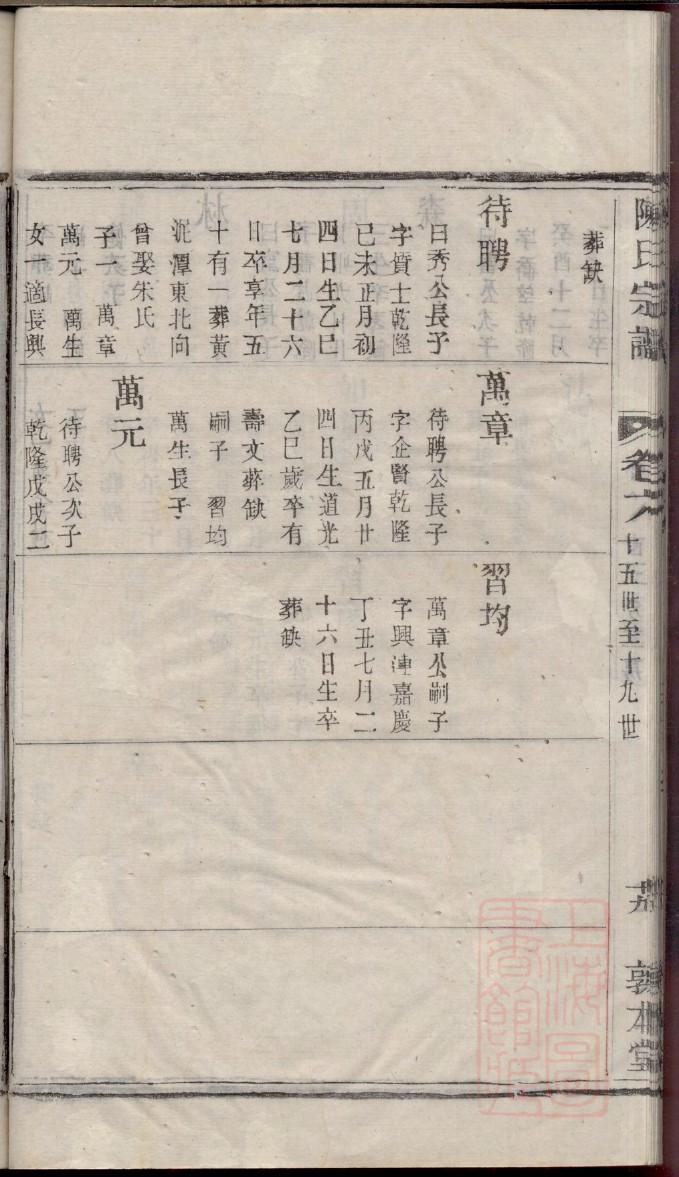 陳氏宗譜
卷六
十五世至十九世
敦本堂
葬缺
待聘
曰秀公長子
字蕡士乾隆
己未正月初
四日生乙巳
七月二十六
日卒享年五
十有一葬黃
泥潭東北向
曾娶朱氏
子一 萬章
萬元 萬生
女一適長興
萬章
待聘公長子
字企賢乾隆
丙戌五月廿
四日生道光
乙巳歲卒有
壽文葬缺
嗣子 習均
萬生長子
萬元
待聘公次子
乾隆戊戌二
習均
萬章公嗣子
字興漣嘉慶
丁丑七月二
十六日生卒
葬缺
上海圖
書館藏